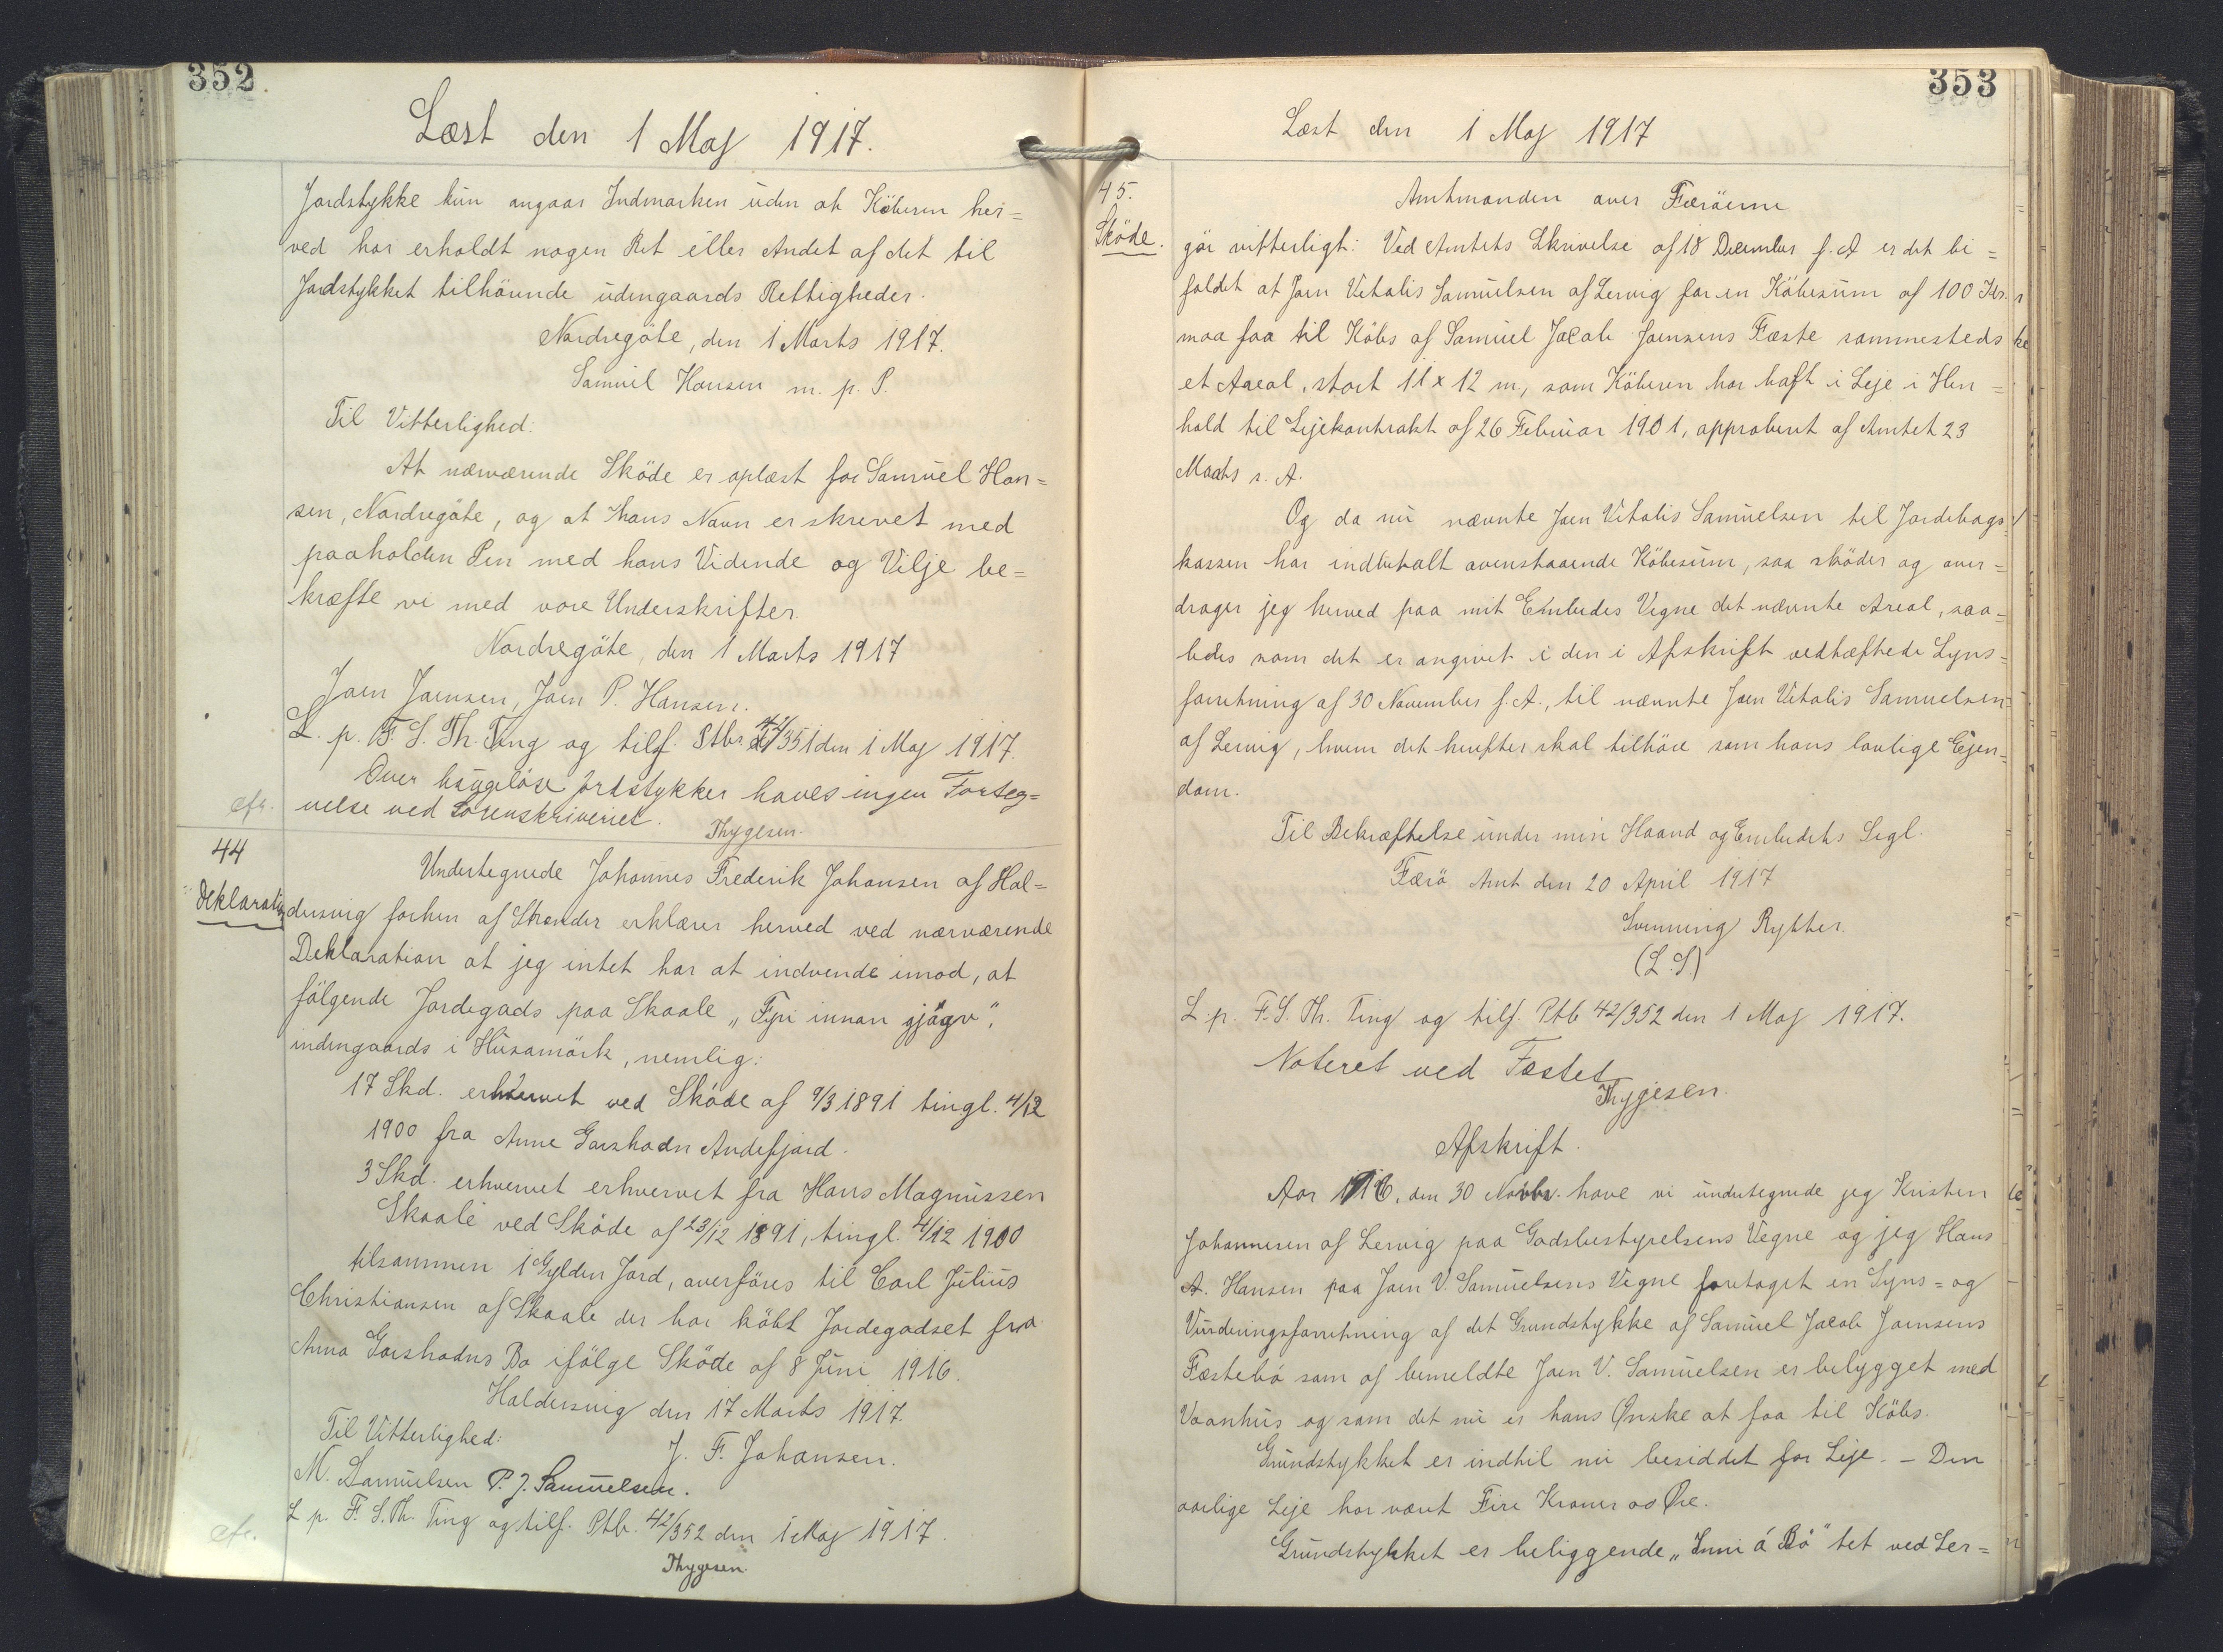 352.
Læst den 1 Maj 1917.
Jordstykke kun angaar Indmarken uden at Köberen her=
ved har erholdt nogen Ret eller Andet af det til
Jordstykket tilhörende udengaards Rettigheder.
Nordregöte, den 1 Marts 1917.
Samuel Hansen m. p. P.
Til Vitterlighed:
At nærværende Sköde er oplæst for Samuel Han=
sen, Nordregöte, og at hans Navn er skrevet med
paaholden Pen med hans Vidende og Vilje be=
kræfte vi med vore Underskrifter.
Nordregöte, den 1 Marts 1917
Joen Joensen, Joen P. Hansen.
L. p. F. S. Th. Ting og tilf. Ptb. 42/351 den 1 Maj 1917.
Over bygelöse Jordstykker haves ingen Forteg=
cfr. nelse ved Sorenskriveriet.
Thygesen.
44
Deklaration
Undertegnede Johannes Frederik Johansen af Hal=
dersvig forhen af Strender erklærer herved ved nærværende
Deklaration at jeg intet har at indvende imod, at
fölgende Jordegods paa Skaale „Fyri innan gjógv",
indengaards i Húsamörk, nemlig:
17 Skd. erhvervet ved Sköde af 9/3 1891 tingl. 4/12
1900 fra Anne Garshodn Andefjord.
3 Skd. erhvervet erhvervet fra Hans Magnussen
Skaale ved Sköde af 23/12 1891, tingl. 4/12 1900
tilsammen 1 Gylden Jord, overföres til Carl Julius
Christiansen af Skaale der har köbt Jordegodset fra
Anna Garshodns Bo ifölge Sköde af 8 Juni 1916.
Haldersvig den 17 Marts 1917.
Til Vitterlighed:
J. F. Johansen.
M. Samuelsen P. J. Samuelsen.
L. p. F. S. Th. Ting og tilf. Ptb. 42/352 den 1 Maj 1917.
cfr.
Thygesen.
353
Læst den 1 Maj 1917
45.
Sköde.
Amtmanden over Færöerne
gör vitterligt: Ved Amtets Skrivelse af 18 December f. A er det bi=
faldet at Joen Vitalis Samuelsen af Lervig for en Köbesum af 100 Kr.
maa faa til Köbs af Samuel Jacob Joensens Fæste sammesteds
et Areal, stort 11 x 12 m, som Köberen har haft i Leje i Hen=
hold til Lejekontrakt af 26 Februar 1901, approberet af Amtet 23
Marts s. A.
Og da nu nævnte Joen Vitalis Samuelsen til Jordebogs=
kassen har indbetalt ovenstaaende Köbesum, saa sköder og over=
drager jeg herved paa mit Embedes Vegne det nævnte Areal, saa=
ledes som det er angivet i den i Afskrift vedhæftede Syns=
forretning af 30 November f. A., til nævnte Joen Vitalis Samuelsen
af Lervig, hvem det herefter skal tilhöre som hans lovlige Ejen=
dom.
Til Bekræftelse under min Haand og Embedets Segl.
Færö Amt den 20 April 1917
Svenning Rytter.
(L. S)
L. p. F. S. Th. Ting og tilf. Ptb 42/352 den 1 Maj 1917.
Noteret ved Fæstet
Thygesen.
Afskrift.
Aar 1916, den 30 Novbr. have vi undertegnede jeg Kristen
Johannesen af Lervig paa Godsbestyrelsens Vegne og jeg Hans
A. Hansen paa Joen V. Samuelsens Vegne foretaget en Syns= og
Vurderingsforretning af det Grundstykke af Samuel Jacob Joensens
Fæstebö som af bemeldte Joen V. Samuelsen er bebygget med
Vaanhus og som det nu er hans Ønske at faa til Köbs.
Grundstykket er indtil nu besiddet for Leje. – Den
aarlige Leje har været Fire Kroner oo Øre.
Grundstykket er beliggende „Inni á Bö" tet ved Ler=